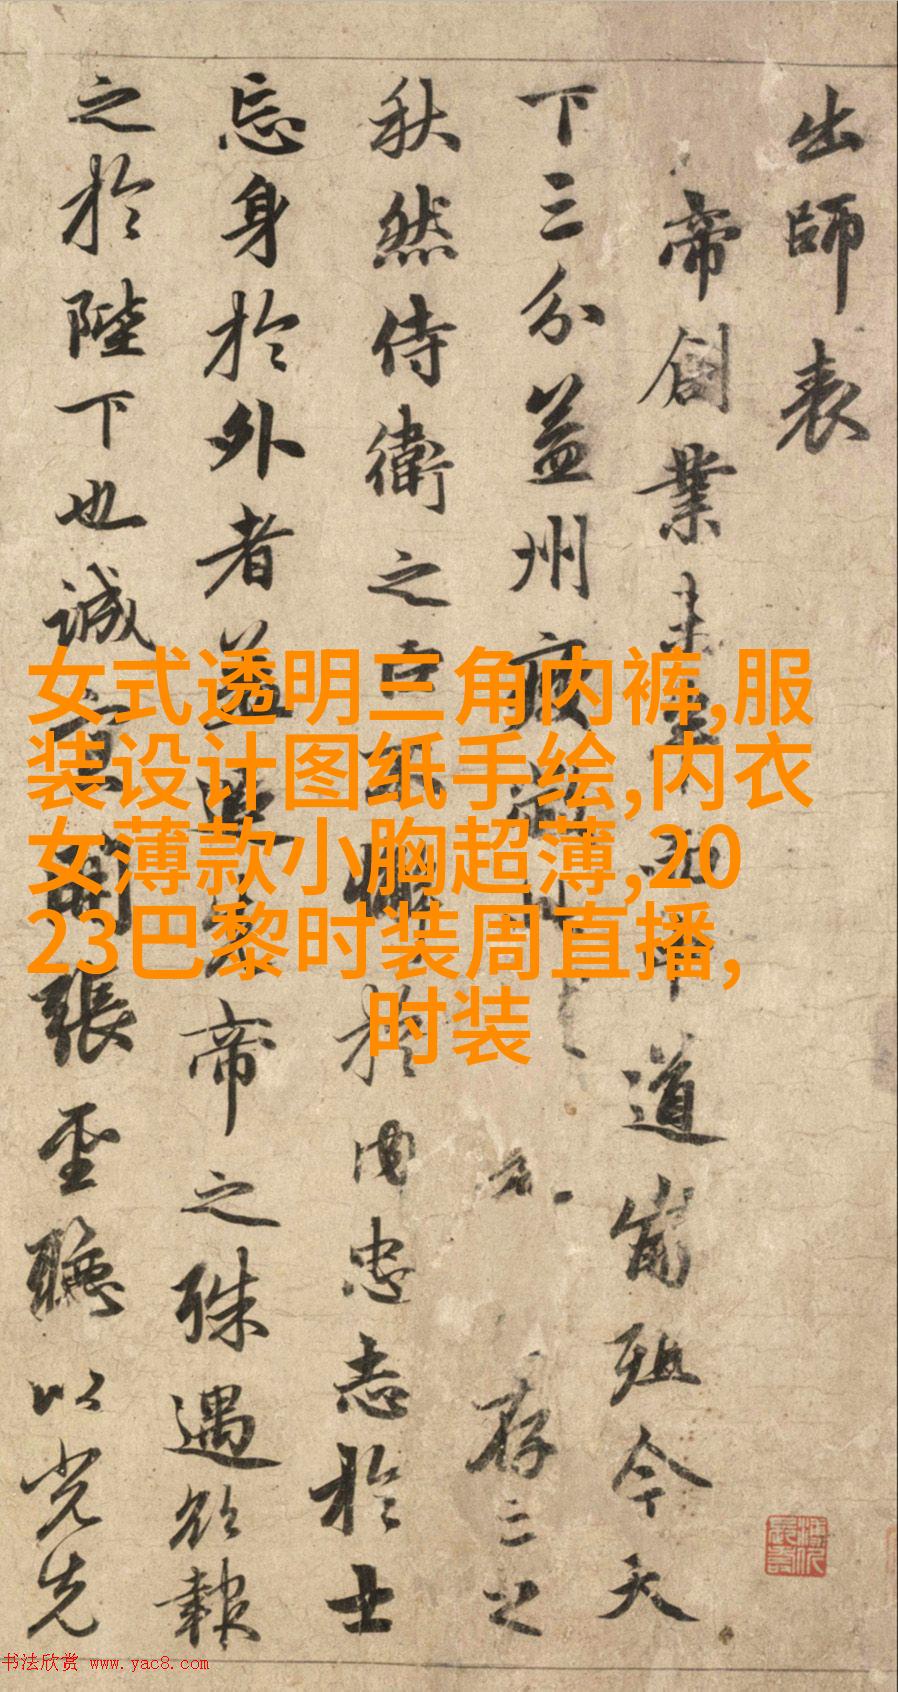 出師表
帝創業未
道崩殂今天
下三分益州疲
存亡之
秋然侍衛之臣不懈於内忠志於士
忘身於外者蓋追先帝之殊遇欲報
之於陛下也誠宜開張聖聽以光先
女式透明三角内裤,服
装设计图纸手绘,内衣
女薄款小胸超薄,20
23巴黎时装周直播,
时装
书法欣赏 www.yac8.com